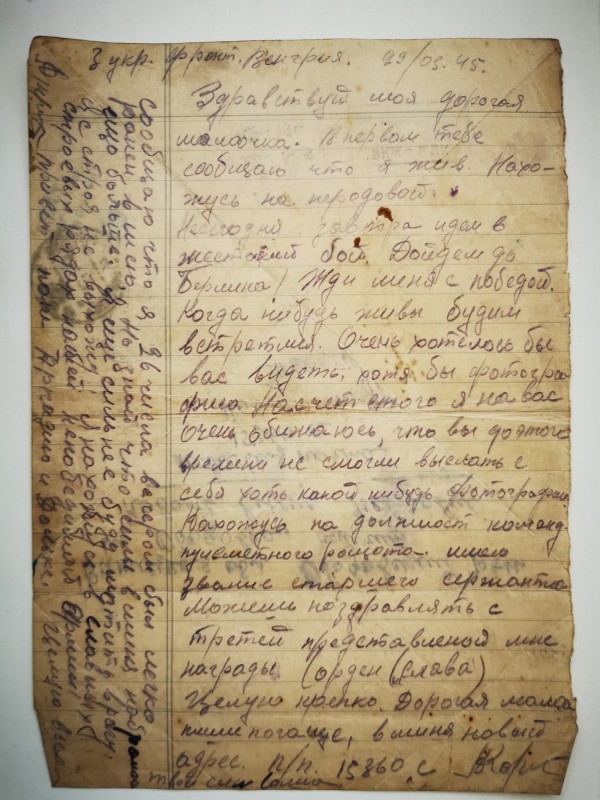 3 укр. фронт. Венгрия. 29/03.45.
Здравствуй моя дорогая
мамочка. В первом тебе
сообщаю что я жив. Нахо-
жусь на передовой.
Несегодня завтра идем в
жестокий бой. Дойдем до
Берлина! Жди меня с победой.
Когда нибудь живы будим
встретимся. Очень хотелось бы
вас видеть, хотя бы фотогра
фию. Насчет этого я на вас
очень обижаюсь, что вы до этого
времени не смогли выслать с
себя хоть какой нибудь фотографии
Нахожусь на должност команд.
пулеметного рощота имею
звание старшего сержанта
Можешь поздравлять с
третей представленой мне
награды (орден (слава)
Целую крепко. Дорогая мама
пиши почаще, в миня новый
адрес. п/п. 15360 с
твой сын
Сообщаю что я, 26 числа вечером был легко
ранен в шею, Но знай что сили в миня прибавило
ещо больше. И еще сильнее буду мстить врагу.
Из строя не выхожу, Я нахожусь в славных
строевых рядах нашей непобедимой армии
привет папи Аркадию и Целую всех